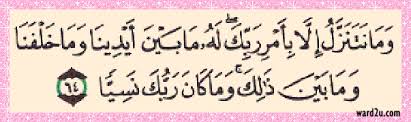 وَمَا نَتَنَزَّلُ إِلَّا بِأَمْرِ رَبِّكَ ۖ لَهُۥ مَا بَيْنَ أَيْدِينَا وَمَا خَلْفَنَا
وَمَا بَيْنَ ذَٰلِكَ ۚ وَمَا كَانَ رَبُّكَ نَسِيًّا ٦٤
ward2u.com